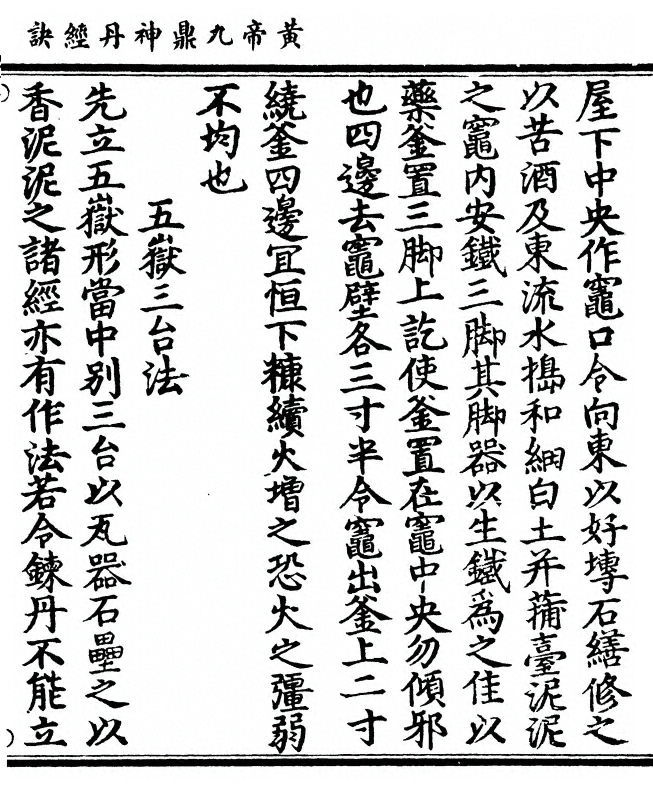 黃帝九鼎神丹經訣
屋下中央作竈口令向東以好塼石繕修之
以苦酒及東流水擣和細白土并蒲臺泥泥
之竈內安鐵三脚其脚器以生鐵爲之佳以
藥釜置三脚上訖使釜置在竈中央勿傾邪
也四邊去竈壁各三寸半令竈出釜上二寸
繞釜四邊宜恒下糠續火增之恐火之彊弱
不均也
五嶽三台法
先立五嶽形當中別三台以瓦器石壘之以
香泥泥之諸經亦有作法若令鍊丹不能立